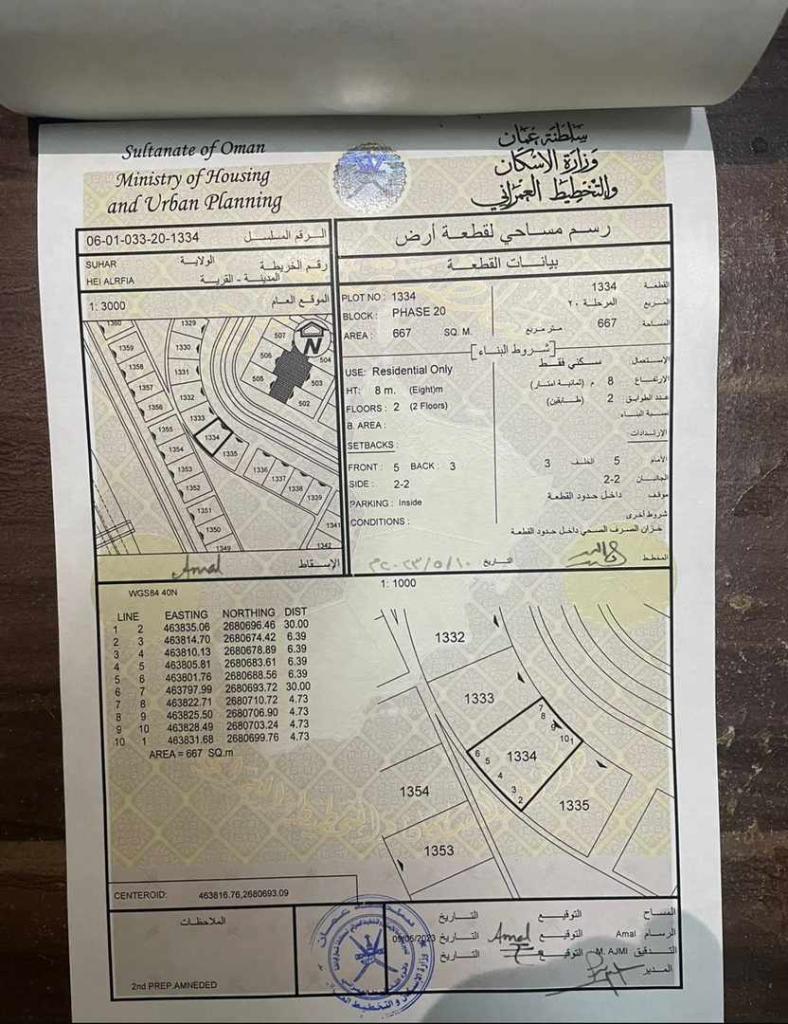 Sultanate of Oman
Ministry of Housing
and Urban Planning
سلطنة عمان
وزارة الإسكان
والتخطيط العمراني
06-01-033-20-1334 الرقم المسلسل
SUHAR الولاية رقم الخريطة
HEI ALRFIA المدينة - القرية
1: 3000 الموقع العام
رسم مساحي لقطعة أرض
بيانات القطعة
PLOT NO : 1334
1334 القطعة
BLOCK : PHASE 20
المرحلة ٢٠ المربع
AREA : 667 SQ. M.
667 متر مربع المساحة
شروط البناء
USE: Residential Only
سكني فقط الاستعمال
HT: 8 m. (Eight)m
8 م (ثمانية امتار) الارتفاع
FLOORS : 2 (2 Floors)
2 (طابقين) عدد الطوابق
B. AREA :
نسبة البناء
SETBACKS :
الارتدادات
FRONT : 5 BACK : 3
الأمام 5 الخلف 3
SIDE : 2-2
الجانبان 2-2
PARKING : Inside
موقف داخل حدود القطعة
CONDITIONS :
شروط أخرى
خزان الصرف الصحي داخل حدود القطعة
1360
1359
1358
1357
1356
1355
1354
1353
1352
1351
1350
1349
1329
1330
1331
1332
1333
1334
1335
1336
1337
1338
1339
1341
1342
507
506
505
504
503
502
N
Amal الإسقاط
المخطط
التاريخ ٢٠٢٣/٥/١٠م
1: 1000
WGS84 40N
LINE EASTING NORTHING DIST
1 2 463835.06 2680696.46 30.00
2 3 463814.70 2680674.42 6.39
3 4 463810.13 2680678.89 6.39
4 5 463805.81 2680683.61 6.39
5 6 463801.76 2680688.56 6.39
6 7 463797.99 2680693.72 30.00
7 8 463822.71 2680710.72 4.73
8 9 463825.50 2680706.90 4.73
9 10 463828.49 2680703.24 4.73
10 1 463831.68 2680699.76 4.73
AREA = 667 SQ.m
1332
1333
1334
1335
1354
1353
7
8
9
10
1
6
5
4
3
2
CENTEROID: 463816.76,2680693.09
الملاحظات
2nd PREP.AMNEDED
المساح التوقيع التاريخ
الرسام Amal التوقيع Amal التاريخ
التدقيق M. AJMI التوقيع التاريخ
المدير